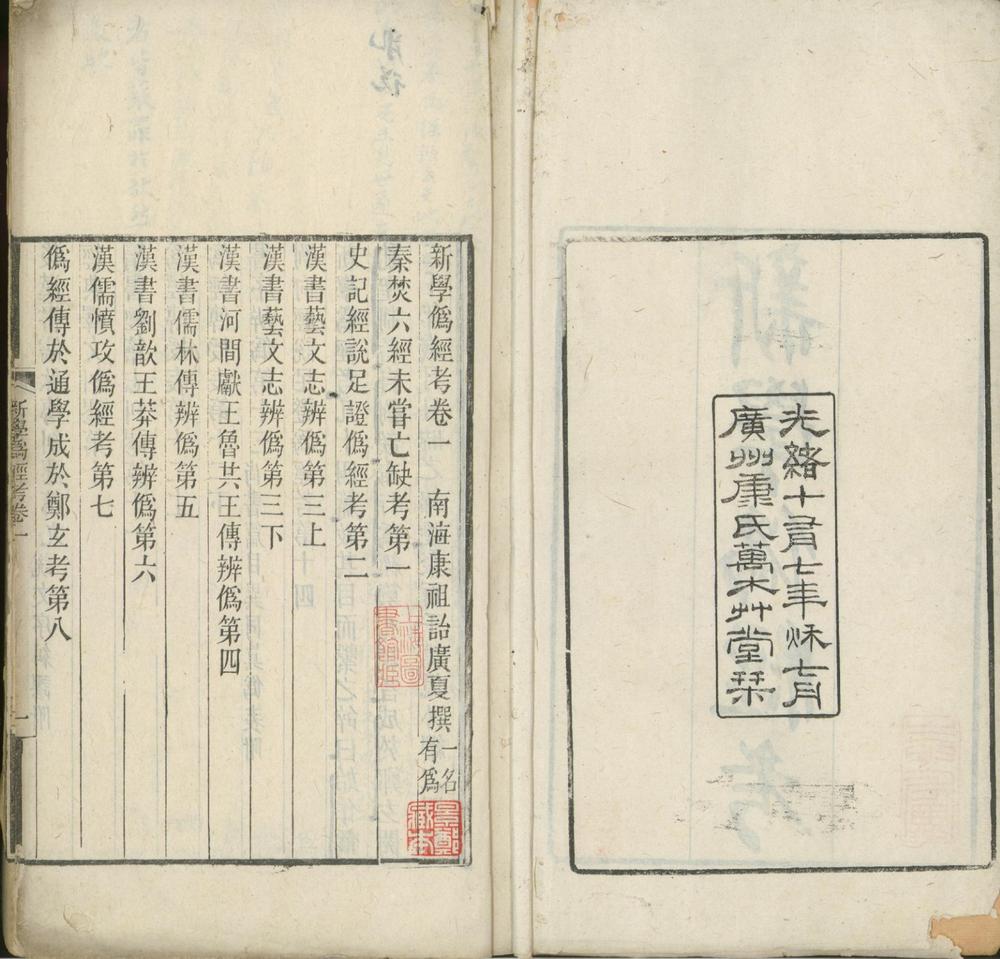 光緒十有七年秌七月
廣州康氏萬木艸堂栞
新學僞經考卷一　南海康祖詒廣夏撰 一名有爲
秦焚六經未嘗亡缺考第一
史記經說足證僞經考第二
漢書藝文志辨僞第三上
漢書藝文志辨僞第三下
漢書河間獻王魯共王傳辨僞第四
漢書儒林傳辨僞第五
漢書劉歆王莽傳辨僞第六
漢儒憤攻僞經考第七
僞經傳於通學成於鄭玄考第八
新學僞經考卷一
一
景鄭藏本